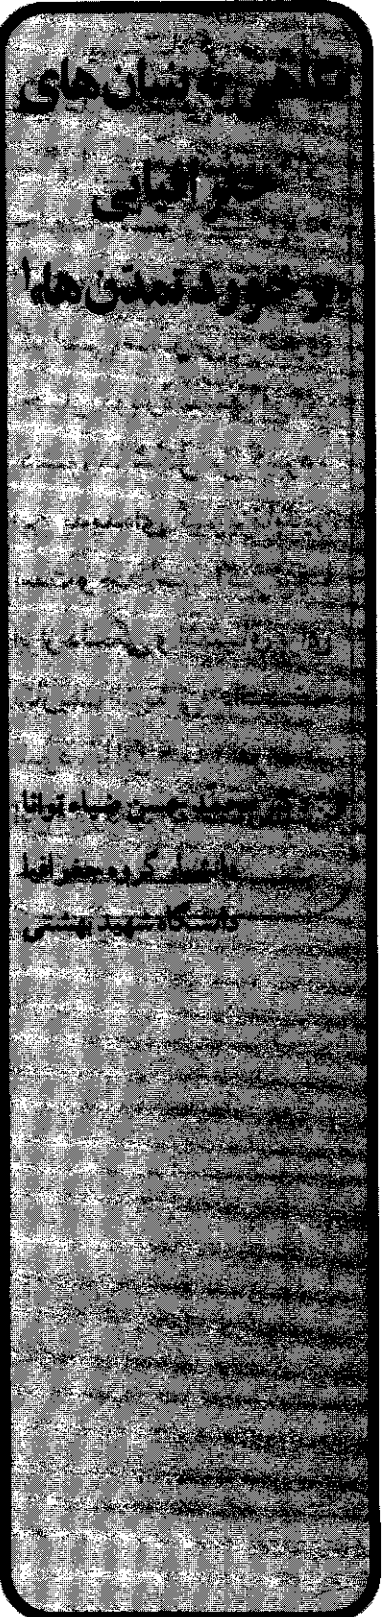 نگاهی به بنیان‌های
جغرافیایی
«برخورد تمدن‌ها»۱
دکتر محمدحسن ضیاء توانا
دانشیار گروه جغرافیا
دانشگاه شهید بهشتی